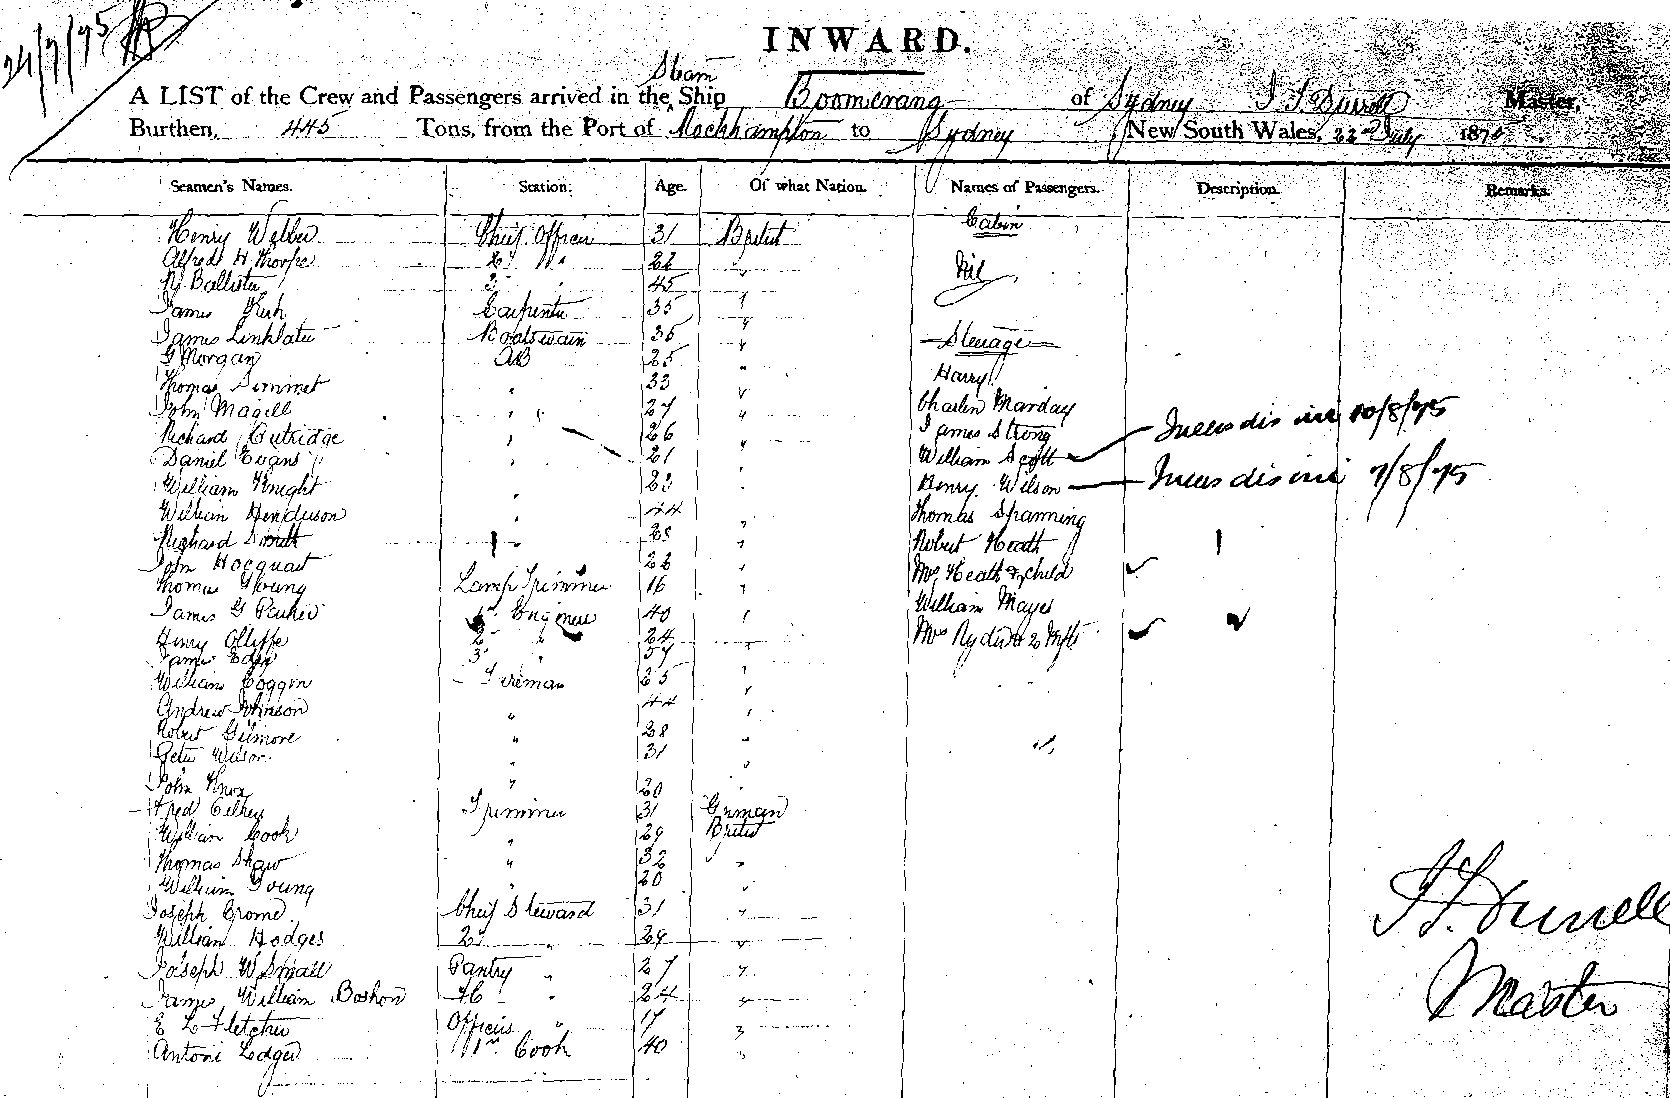 24/7/75
INWARD.
Steam
A LIST of the Crew and Passengers arrived in the Ship Boomerang of Sydney Master,
Burthen, 445 Tons, from the Port of Rockhampton to Sydney New South Wales, 22nd July 187
Seamen's Names. Station. Age. Of what Nation. Names of Passengers. Description. Remarks.
Henry Webber Chief Officer 31 British Cabin
Alfred H Thorpe 2d " 22 "
Ballister 3 " 45 " Nil
James Kirk Carpenter 35 "
James Linklater Boatswain 35 " Steerage
G Morgan AB 25 "
Thomas " 33 " Harry
John Magill " 27 " Charles Marday
Richard Cutridge " 26 " James Strong
Daniel Evans " 21 " William Scott 10/8/75
William Knight " 23 " Henry Wilson 9/8/75
William Henderson " 44 " Thomas Spanning
Richard " 28 " Robert Heath
John Hocquart " 22 " Mrs Heath & child
Thomas Young Lamp Trimmer 16 " William Mayes
James G Parker 1st Engineer 40 "
Henry Olliffe 2 " 24 " Mrs Ryder & 2
James Eden 3 " 37 "
William Coggin Fireman 25 "
Andrew Johnson " 44 "
Robert Gilmore " 28 "
Peter Wilson " 31 "
John Knox " 20 "
Fred Trimmer 31 German
William Cook " 29 British
Thomas Shaw " 32 "
William Young " 20 "
Joseph Crome Chief Steward 31 "
William Hodges 2d " 29 "
Joseph W Small Pantry " 27 "
James William Boshon " 24 "
E L Fletcher Officers " 17 "
Antoni Ledger 1st Cook 40 "
Master